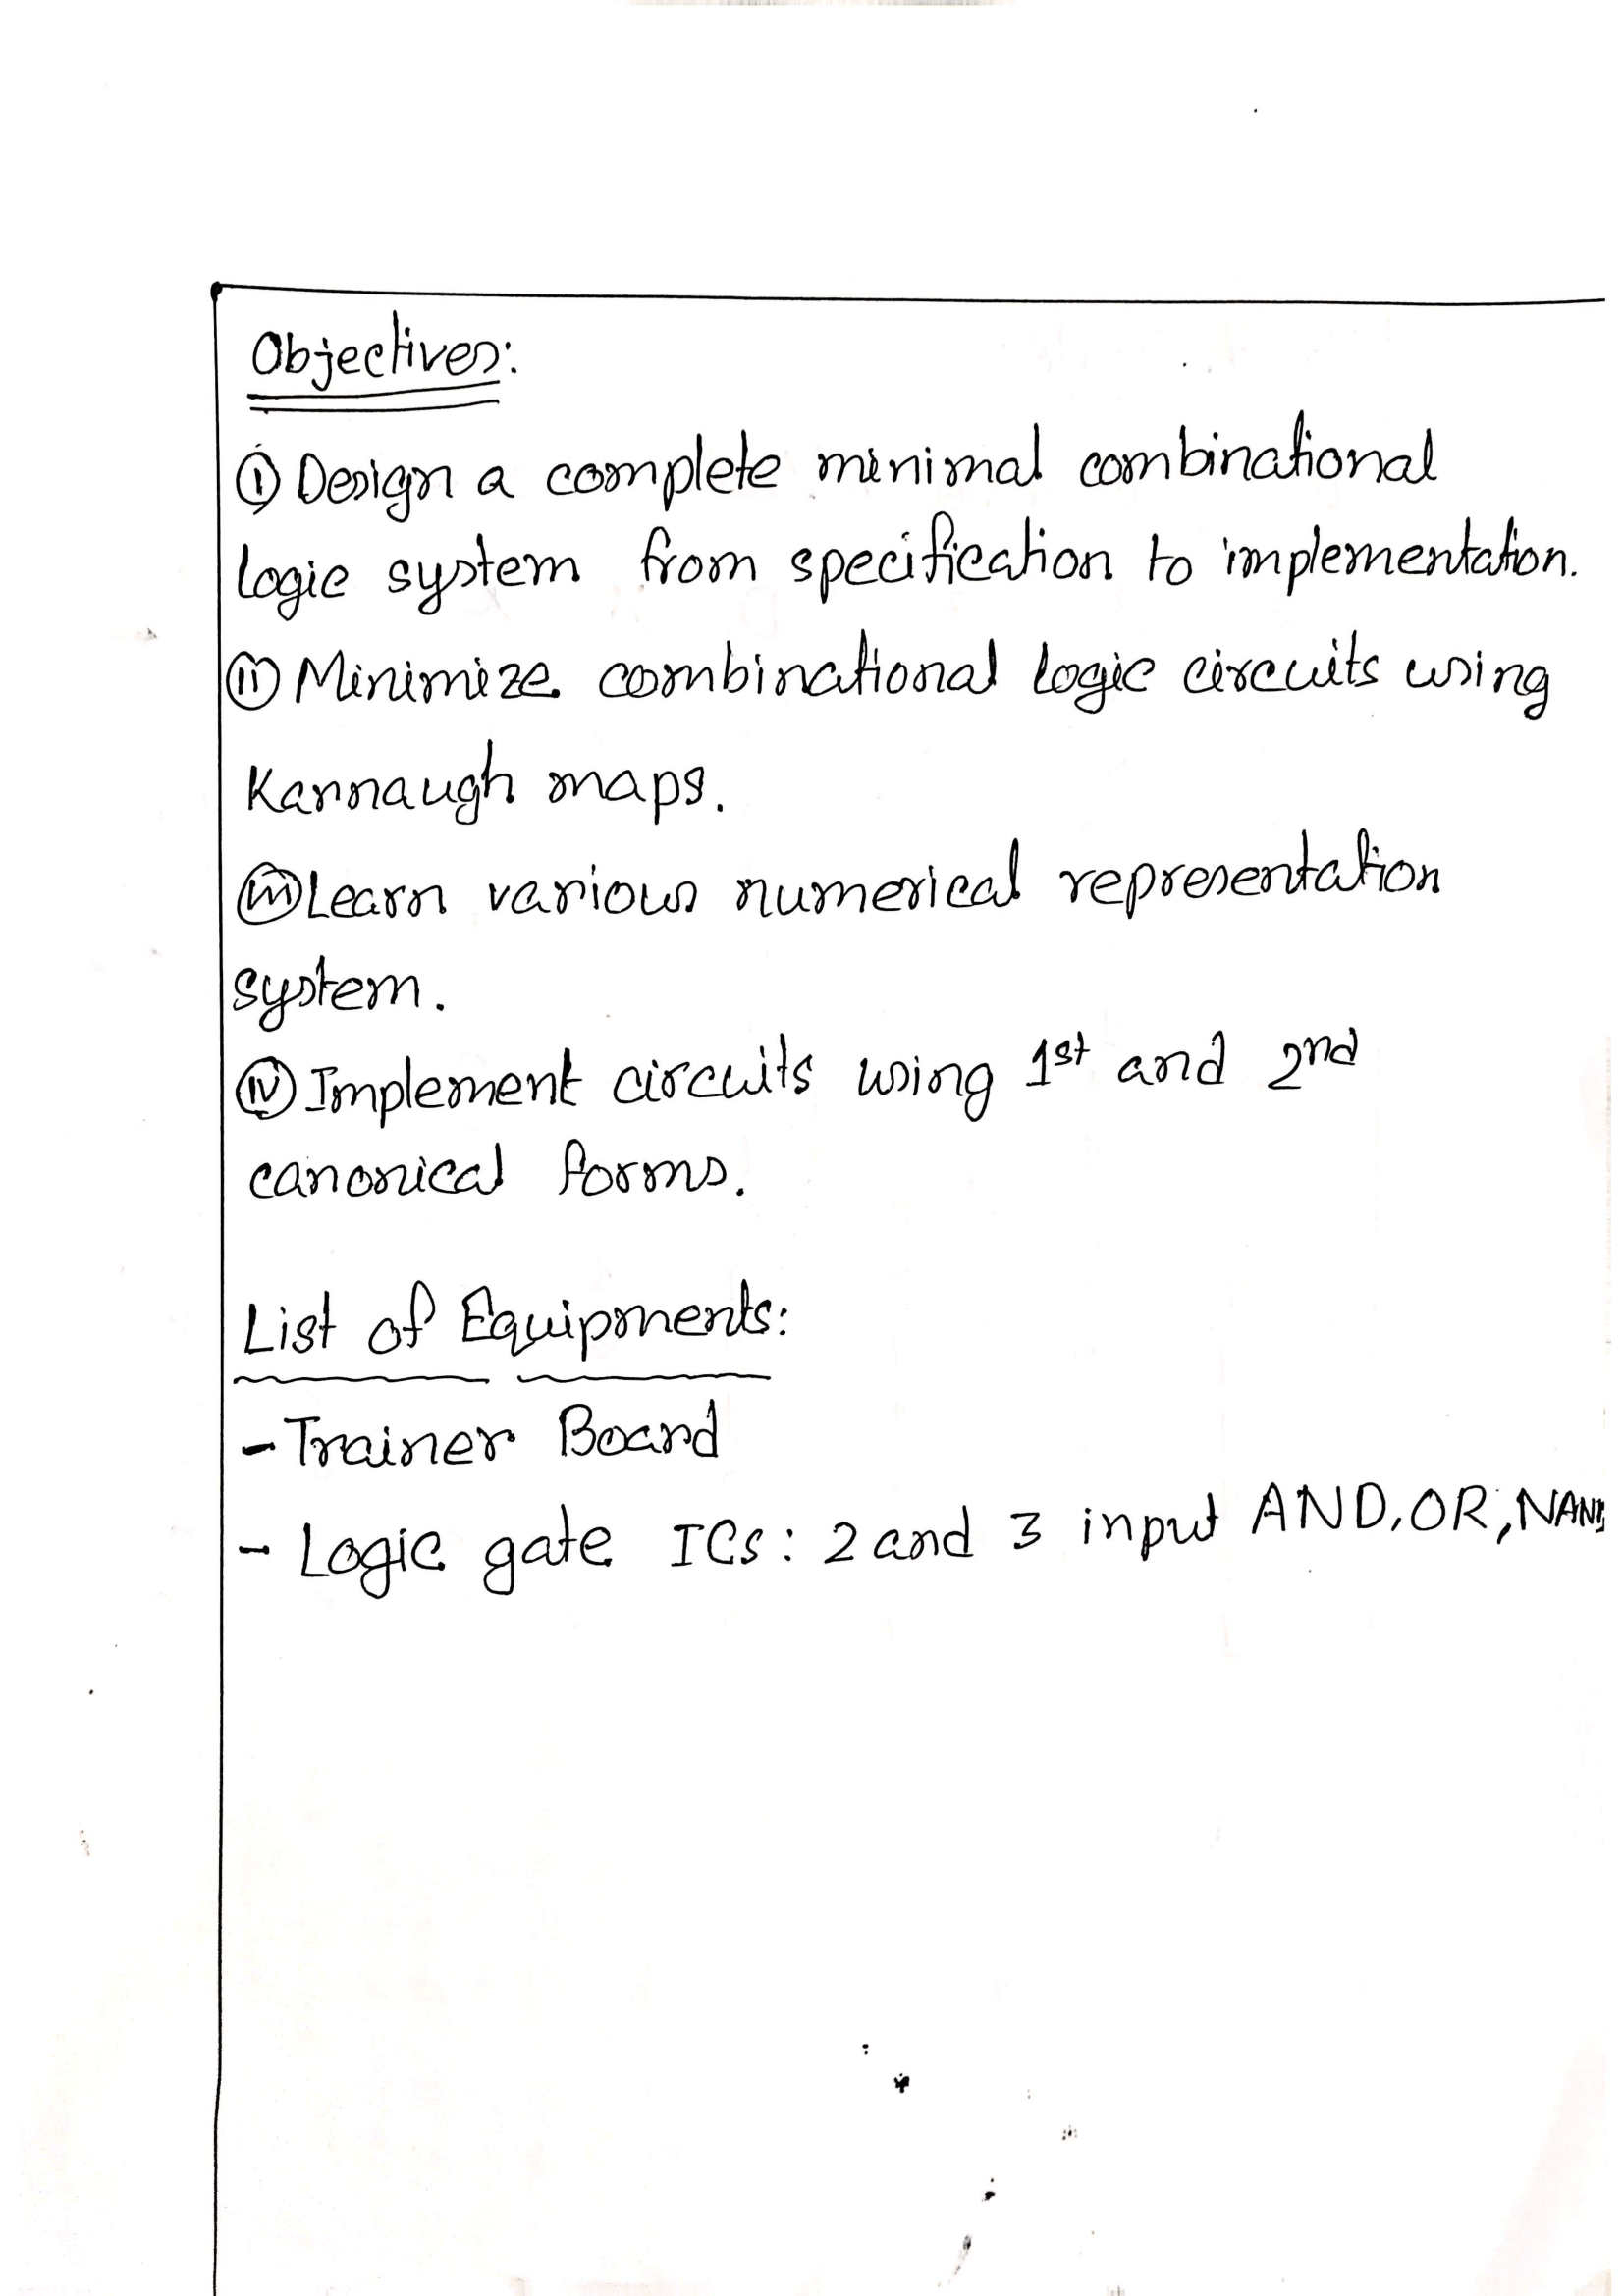 Objectives:
(i) Design a complete minimal combinational
logic system from specification to implementation.
(ii) Minimize combinational logic circuits using
Karnaugh maps.
(iii) Learn various numerical representation
system.
(iv) Implement circuits using 1st and 2nd
canonical forms.
List of Equipments:
- Trainer Board
- Logic gate ICs: 2 and 3 input AND, OR, NAND